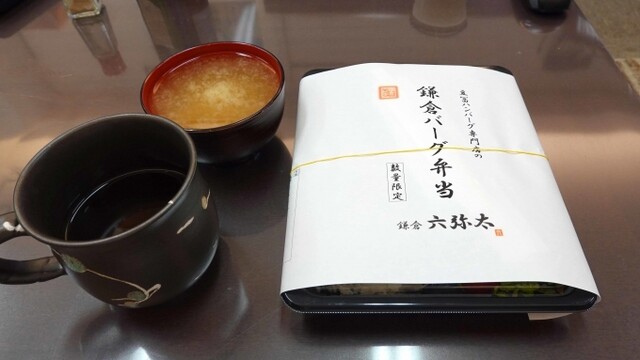 豆富ハンバーグ専門店の
鎌倉バーグ弁当
数量限定
鎌倉 六弥太